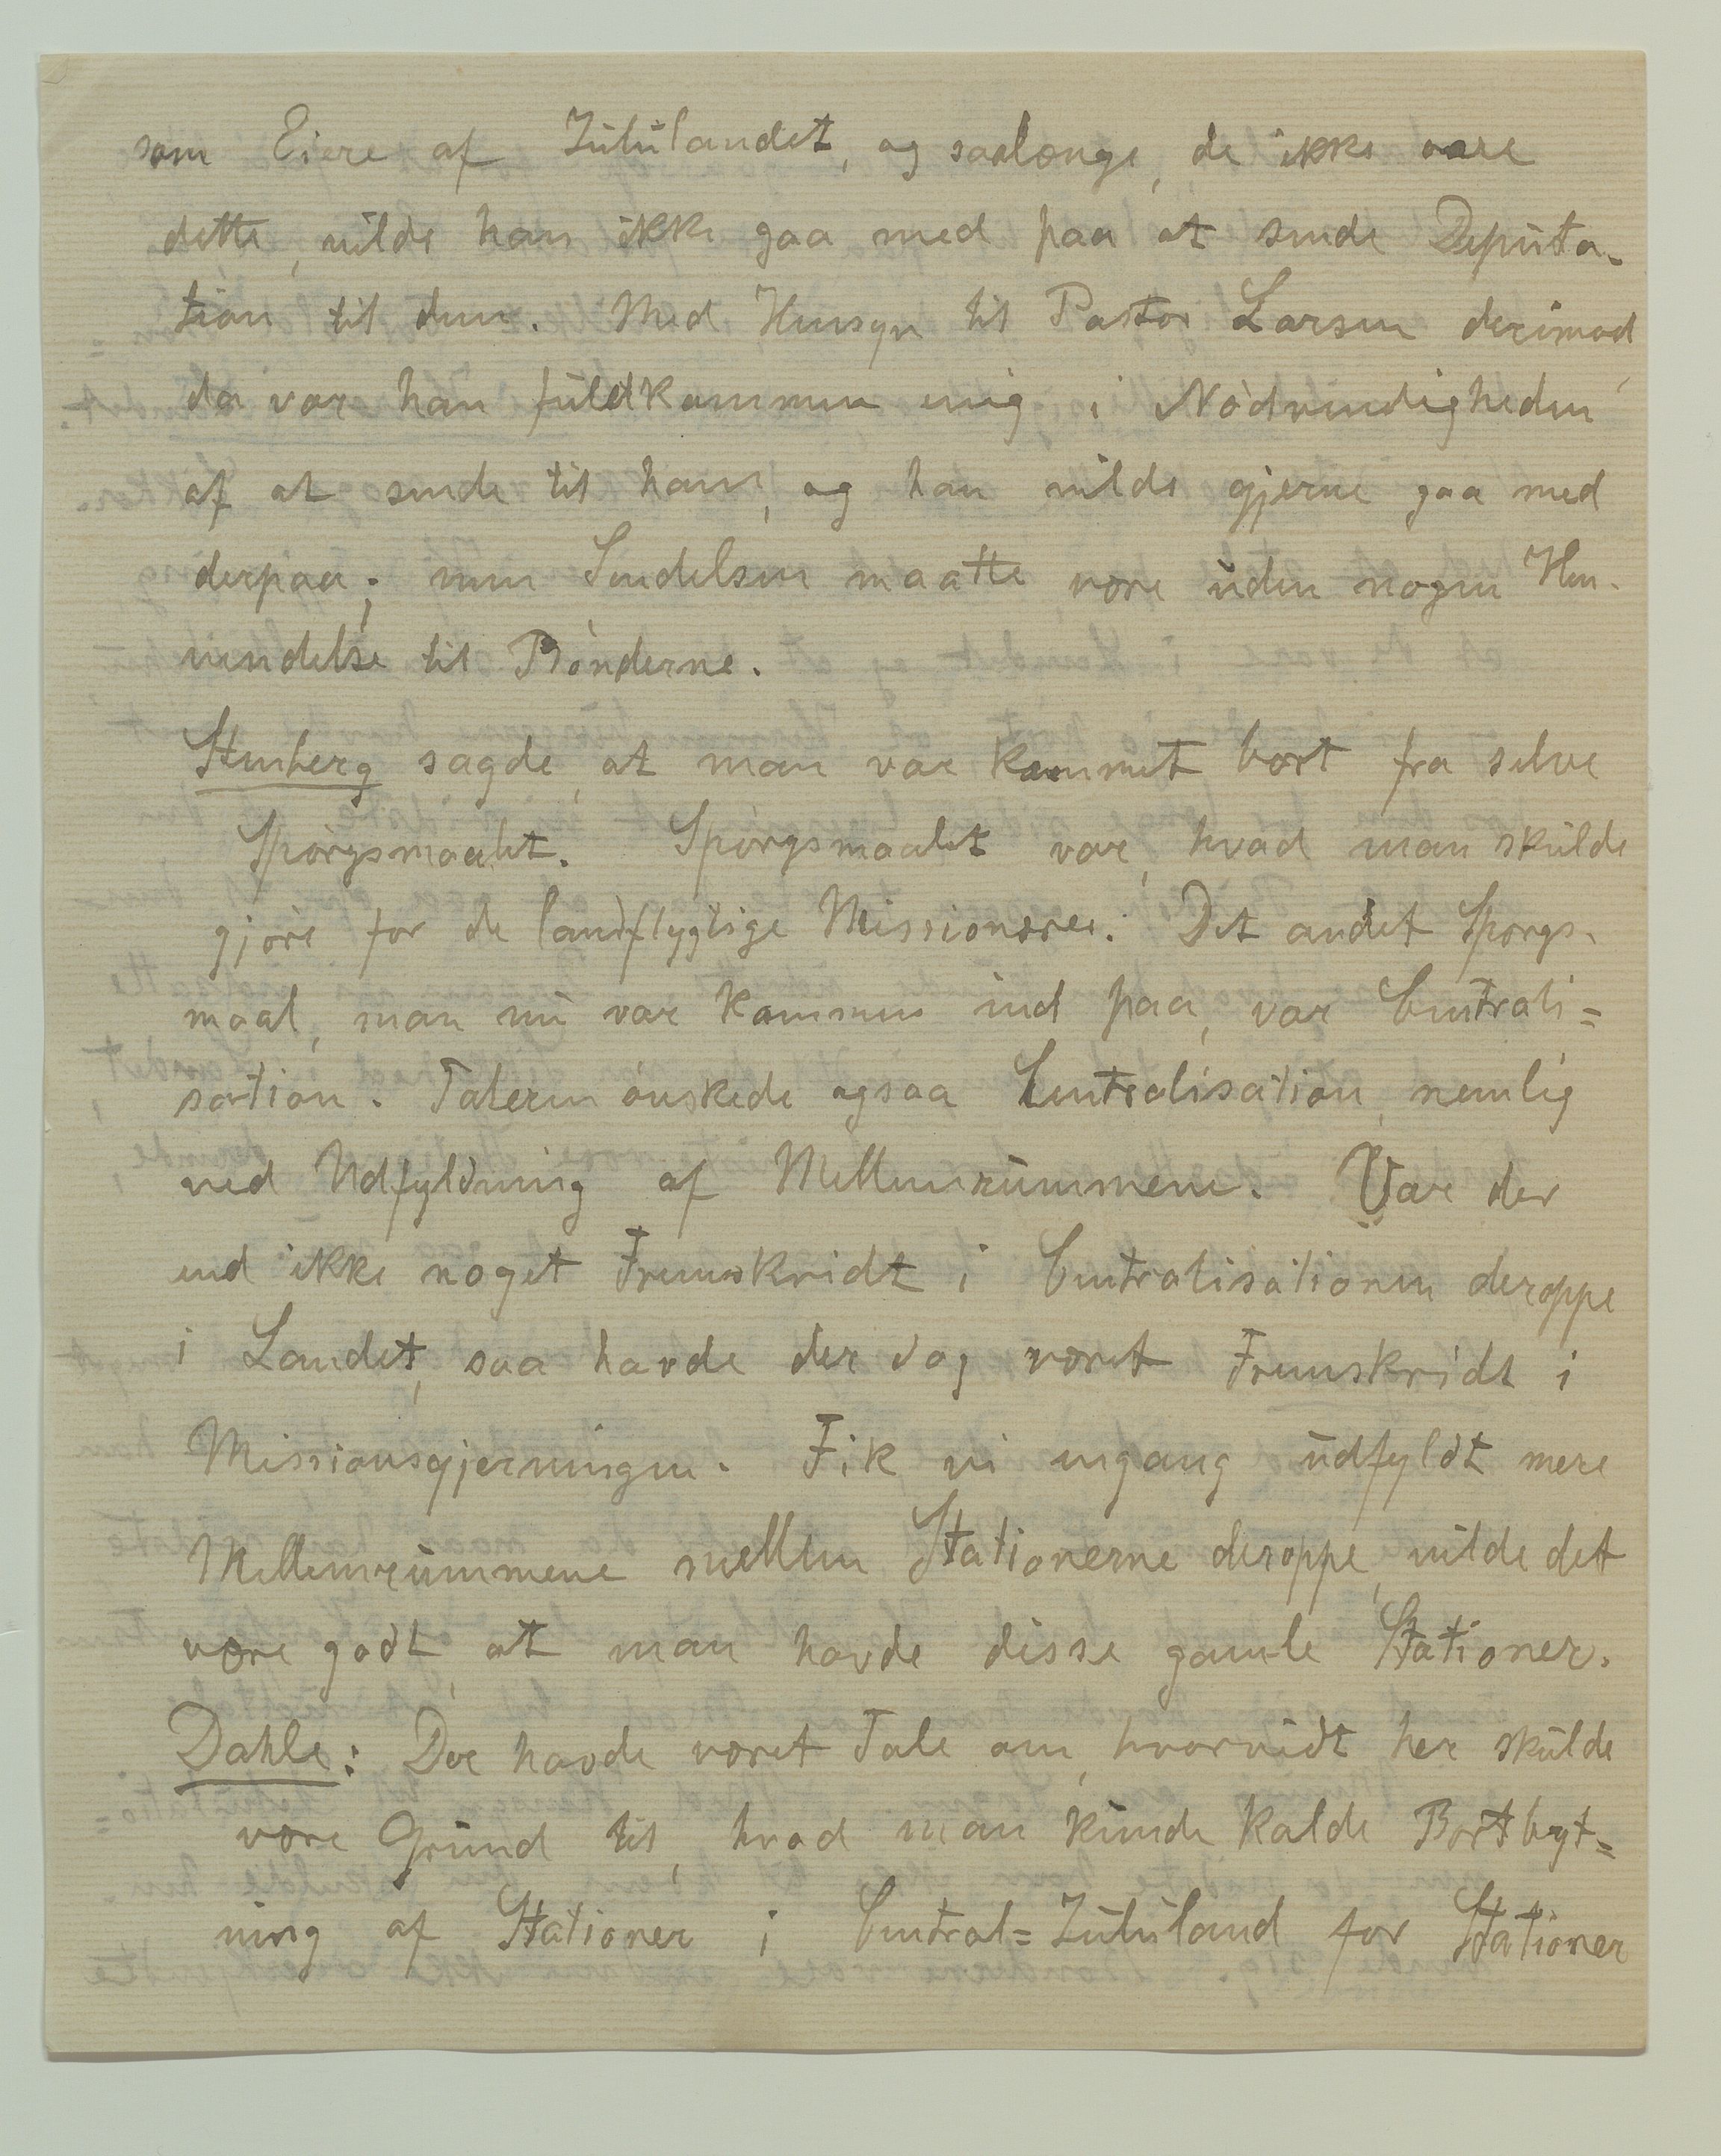 som Eiere af Zululandet, og saalænge, de ikke vare
dette, vilde han ikke gaa med paa at sende Deputa-
tion til dem. Med Hensyn til Pastor Larsen derimod,
da var han fuldkommen enig i Nødvendigheden
af at sende til ham, og han vilde gjerne gaa med
derpaa; men Sendelsen maatte være uden nogen Hen-
vendelse til Bønderne.
Stenberg sagde, at man var kommet bort fra selve
Spørgsmaalet. Spørgsmaalet var, hvad man skulde
gjøre for de landflygtige Missionærer. Det andet Spørgs-
maal, man nu var kommen ind paa, var Centrali=
sation. Taleren ønskede ogsaa Centralisation, nemlig
ved Udfyldning af Mellemrummene. Var der
end ikke noget Fremskridt i Centralisationen deroppe
i Landet, saa havde der dog været Fremskridt i
Missionsgjerningen. Fik vi engang udfyldt mere
Mellemrummene mellem Stationerne deroppe, vilde det
være godt, at man havde disse gamle Stationer.
Dahle: Der havde været Tale om, hvorvidt her skulde
være Grund til, hvad man kunde kalde Bortbyt=
ning af Stationer i Central=Zululand for Stationer